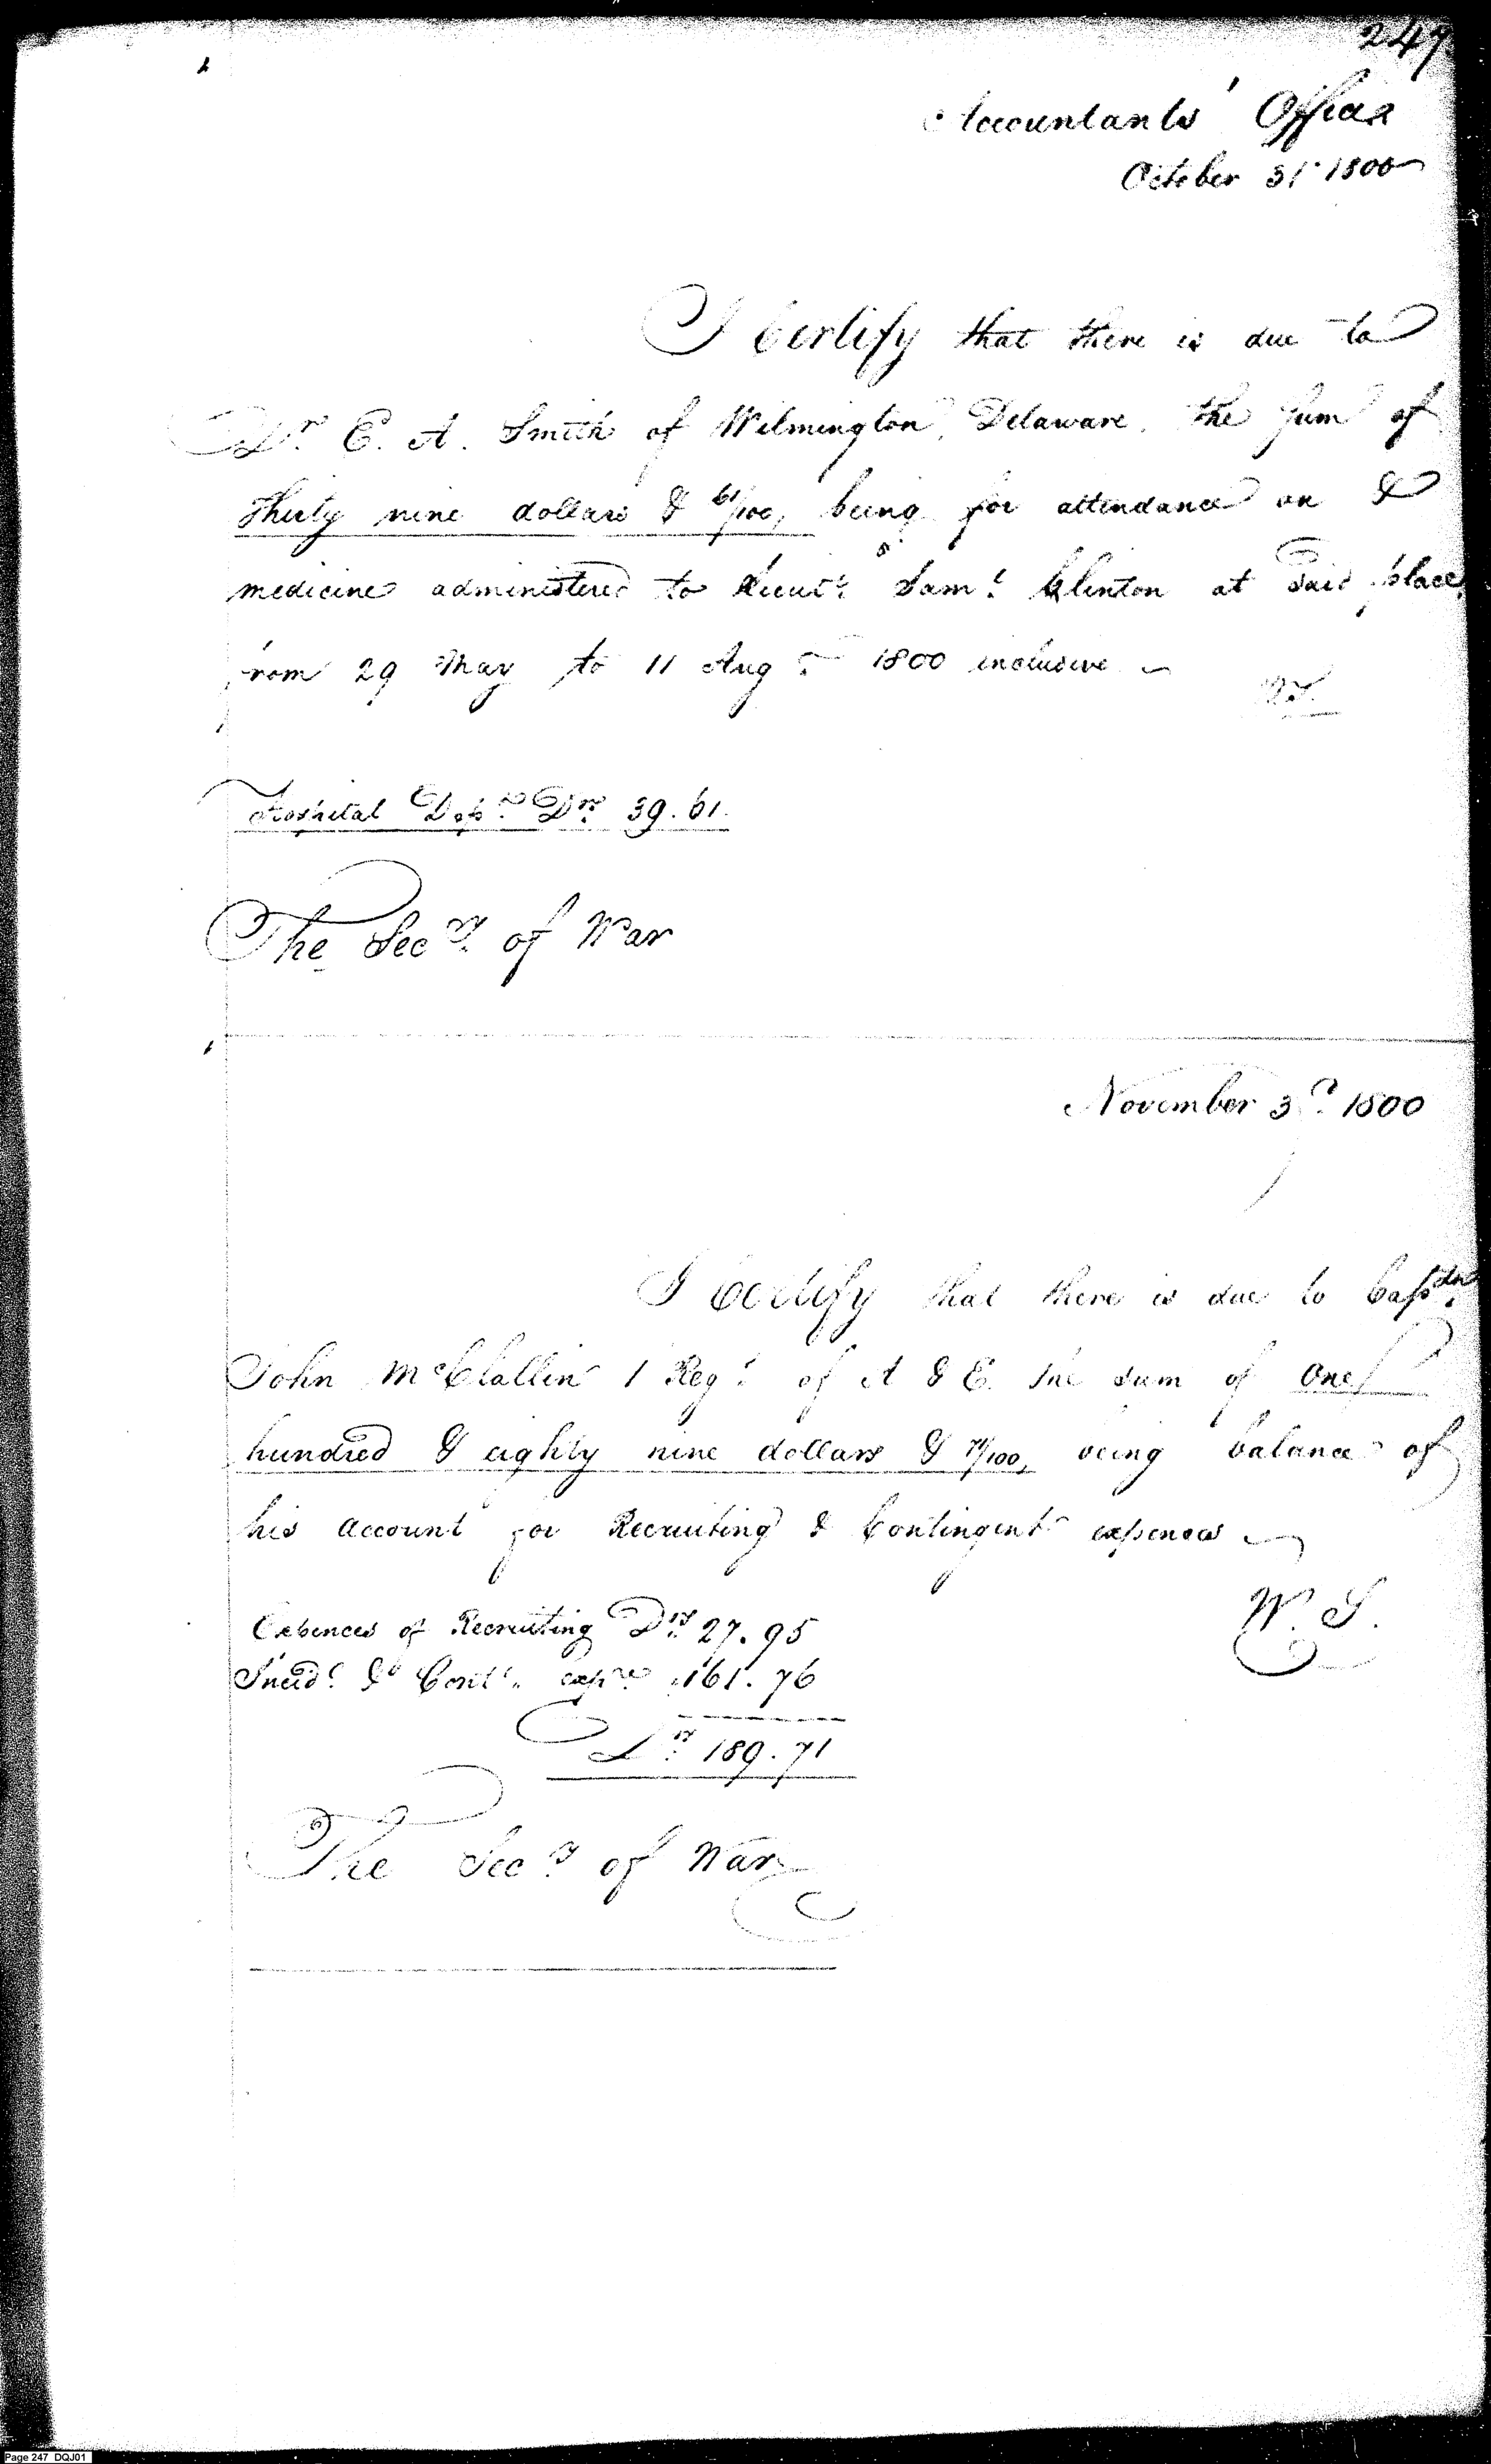 247
Accountants' Office
October 31. 1800
I Certify that there is due to
Dr. E. A. Smith of Wilmington, Delaware, the Sum of
Thirty nine dollars & 61/100, being for attendance on &
medicine administered to Lieut. Saml. Clinton at said place,
from 29 May to 11 Aug. 1800 inclusive
W. S.
Hospital Dept. Drs. 39.61.
The Secy. of War
November 3d. 1800
I Certify that there is due to Captn.
John McClallin 1 Regt. of A & E. the sum of One
hundred & eighty nine dollars & 71/100, being balance of
his account for Recruiting & Contingent expences
W. S.
Expences of Recruiting Drs. 27.95
Incidl. & Contt. expes. 161.76
Drs. 189.71
The Secy. of War
Page 247 DQJ01